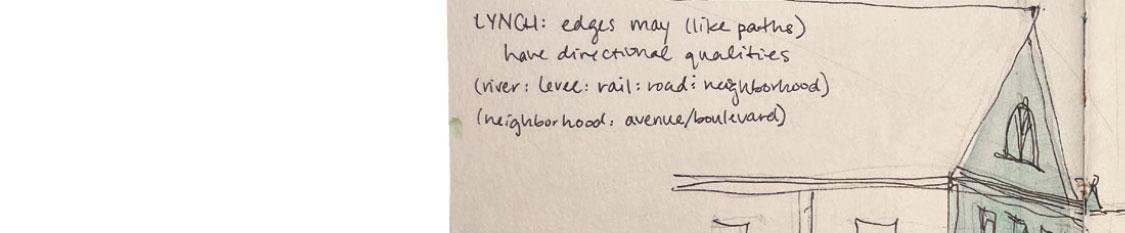 LYNCH: edges may (like paths)
have directional qualities
(river: levee: rail: road: neighborhood)
(neighborhood: avenue/boulevard)